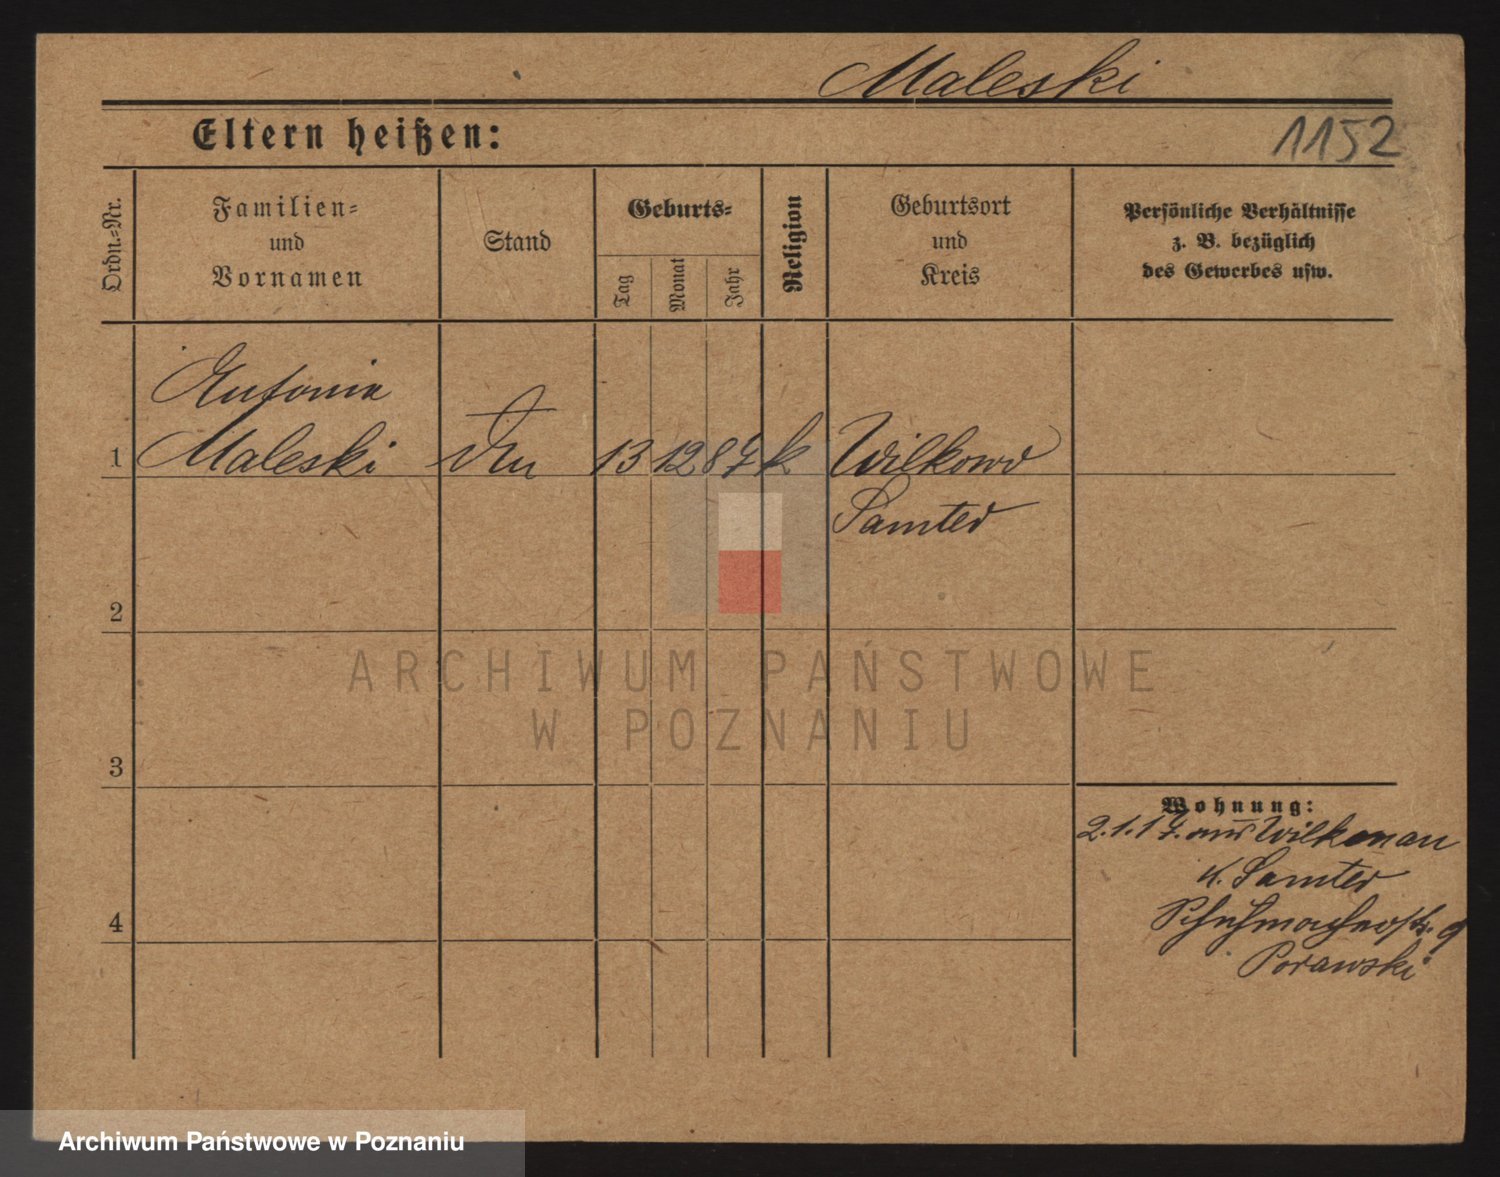 Maleski
1152
Eltern heißen:
Ordn.-Nr.
Familien-
und
Vornamen
Stand
Geburts-
Tag
Monat
Jahr
Religion
Geburtsort
und
Kreis
Persönliche Verhältnisse
z. B. bezüglich
des Gewerbes usw.
Antonia
1 Maleski 13 12 87 k Wilkowo
Samter
2
3
4
Wohnung:
2.1.17. aus Wilkonau
K. Samter
Schuhmacherstr. 9
Porawski
ARCHIWUM PAŃSTWOWE
W POZNANIU
Archiwum Państwowe w Poznaniu